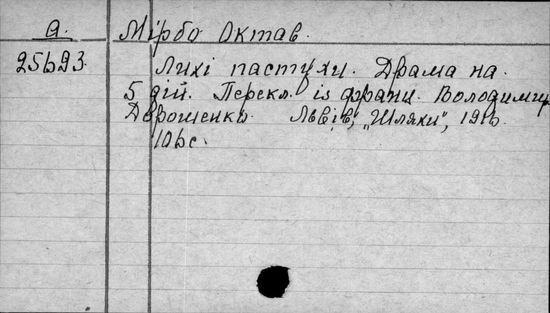 а. Мірбо Октав.
25623. Лихі пастухи. Драма на
5 дій. Перекл. із франц. Володимир
Дорошенко. Львів, "Шляхи", 1916.
106 с.